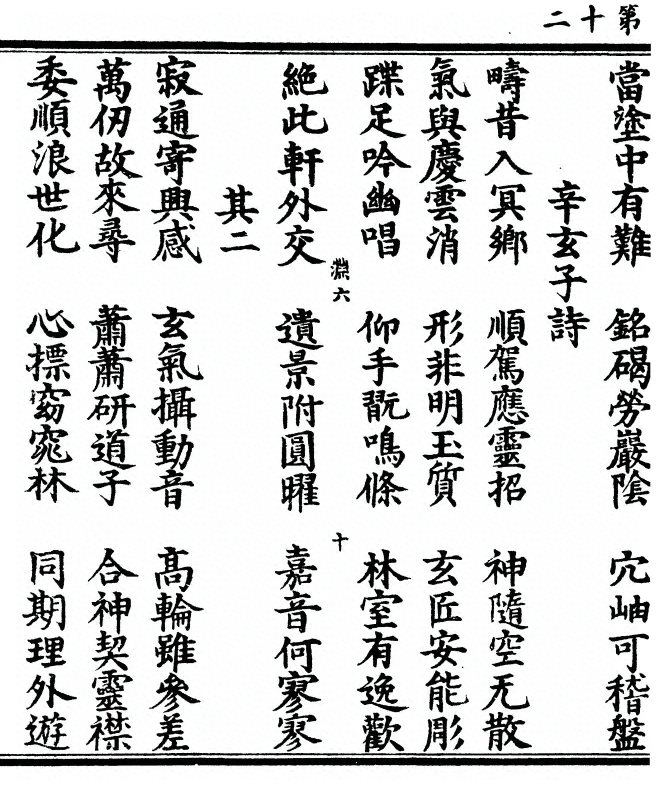 第十二
當塗中有難　銘碣勞巖陰　穴岫可稽盤
辛玄子詩
疇昔入冥鄉　順駕應靈招　神隨空无散
氣與慶雲消　形非明玉質　玄匠安能彫
蹀足吟幽唱　仰手翫鳴條　林室有逸歡
絕此軒外交　遺景附圓曜　嘉音何寥寥
淵六　十
其二
寂通寄興感　玄氣攝動音　高輪雖參差
萬仞故來尋　蕭蕭研道子　合神契靈襟
委順浪世化　心摽窈窕林　同期理外遊